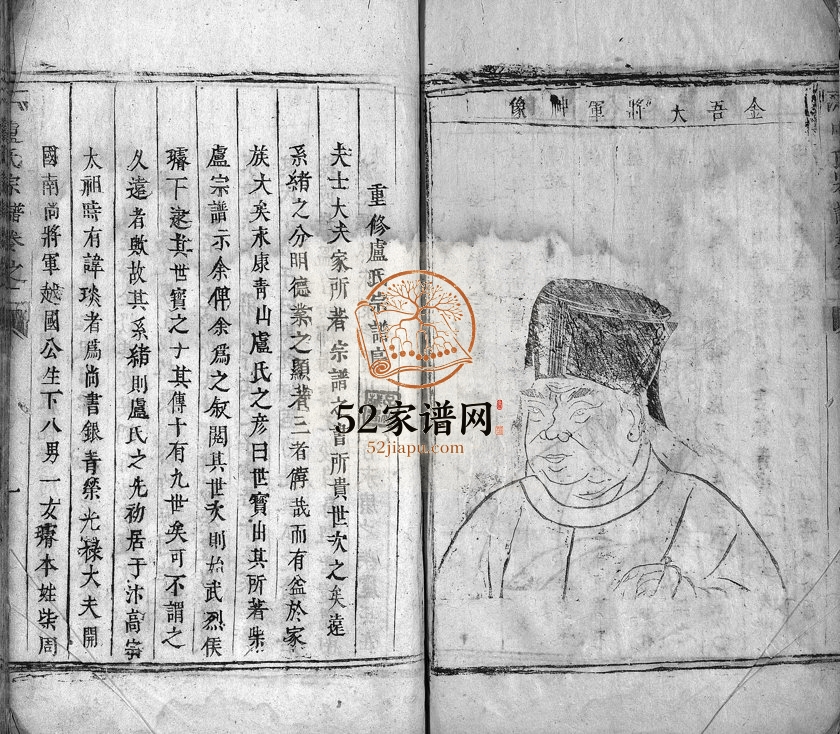 金吾大將軍神像
重修盧氏宗譜
夫士大夫家所著宗譜之昔所貴世次之矣遠
系緒之分明德業之顯著三者偹哉而有益於家
族大矣永康青山盧氏之彦曰世寶出其所著柴
盧宗譜示余俾余爲之叙閲其世次則始武烈侯
璹下逮其世寶之十其傳十有九世矣可不謂之
久遠者歟故其系緒則盧氏之先初居于汴高宗
太祖時有諱琰者爲尚書銀青榮光禄大夫開
國南尚將軍越國公生下八男一女璹本姓柴周
盧氏宗譜卷之一
一
52家谱网
52jiapu.com